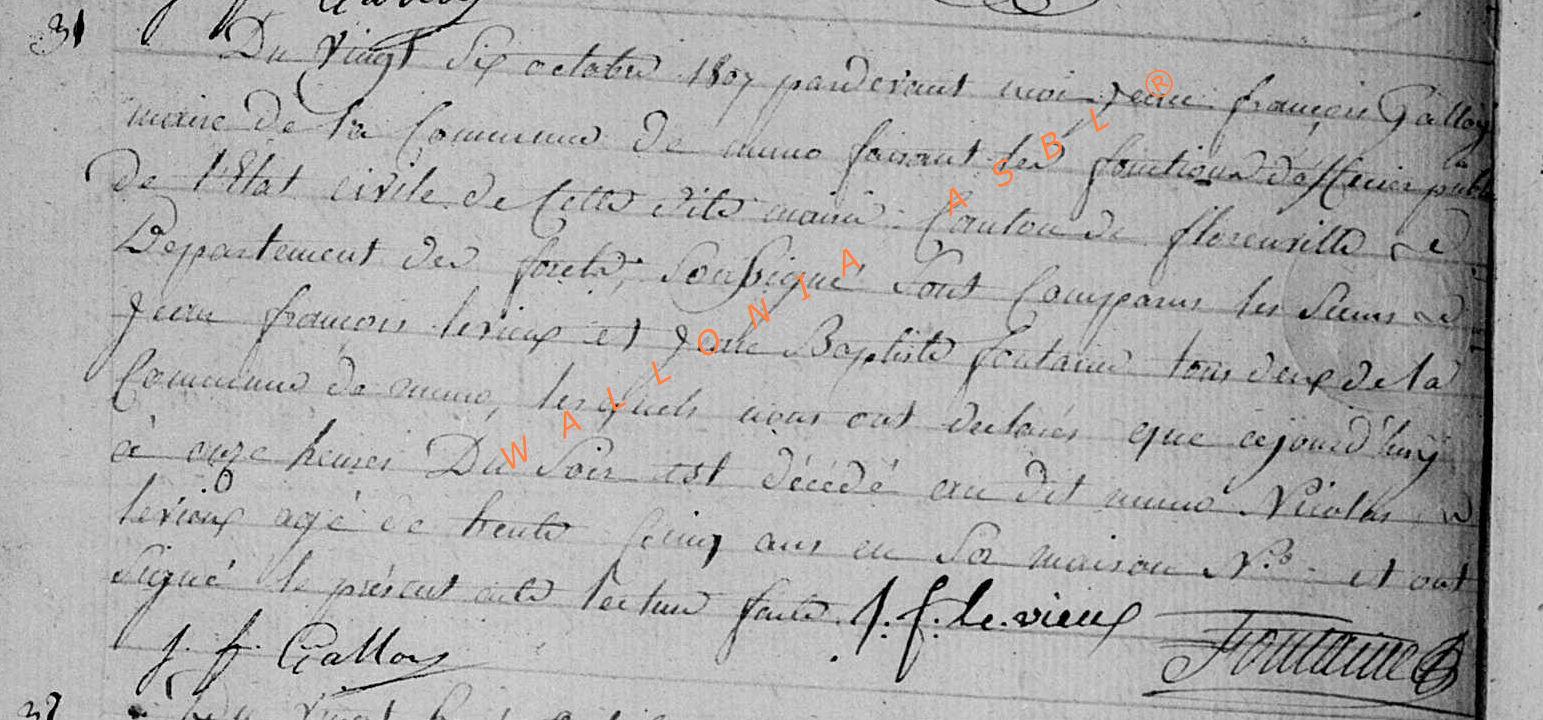 31
Du vingt Six octobre 1807 pardevant moi Jean françois Galloy
maire de la Commune de muno faisant les fonctions d'officier public
de l'Etat civile de Cette dite mairie Canton de florenville
Departement des forets, Soussigné Sont Comparus les Sieurs
Jean françois levieux et Jean Baptiste fontaine tous deux de la
Commune de muno, les quels nous ont declarés que cejourd'huy
à onze heures Du Soir est décédé au dit muno Nicolas
levieux agé de trente Cinq ans en Sa maison N.º et ont
Signé le présent acte lecture faite. J. f. le vieux
Fontaine
J. f. Galloy
32
WALLONIA ASBL ®